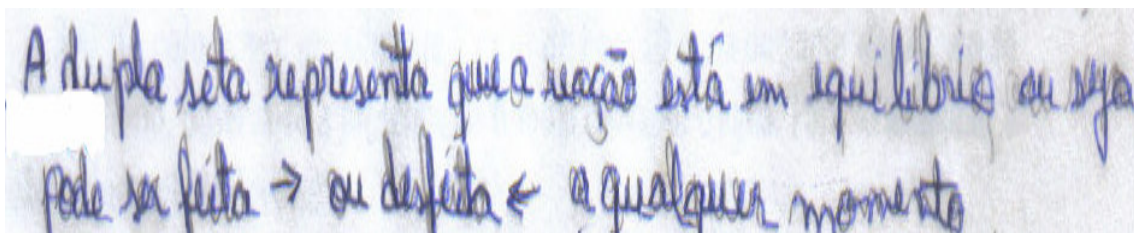 A dupla seta representa que a reação está em equilíbrio ou seja
pode ser feita → ou desfeita ← a qualquer momento